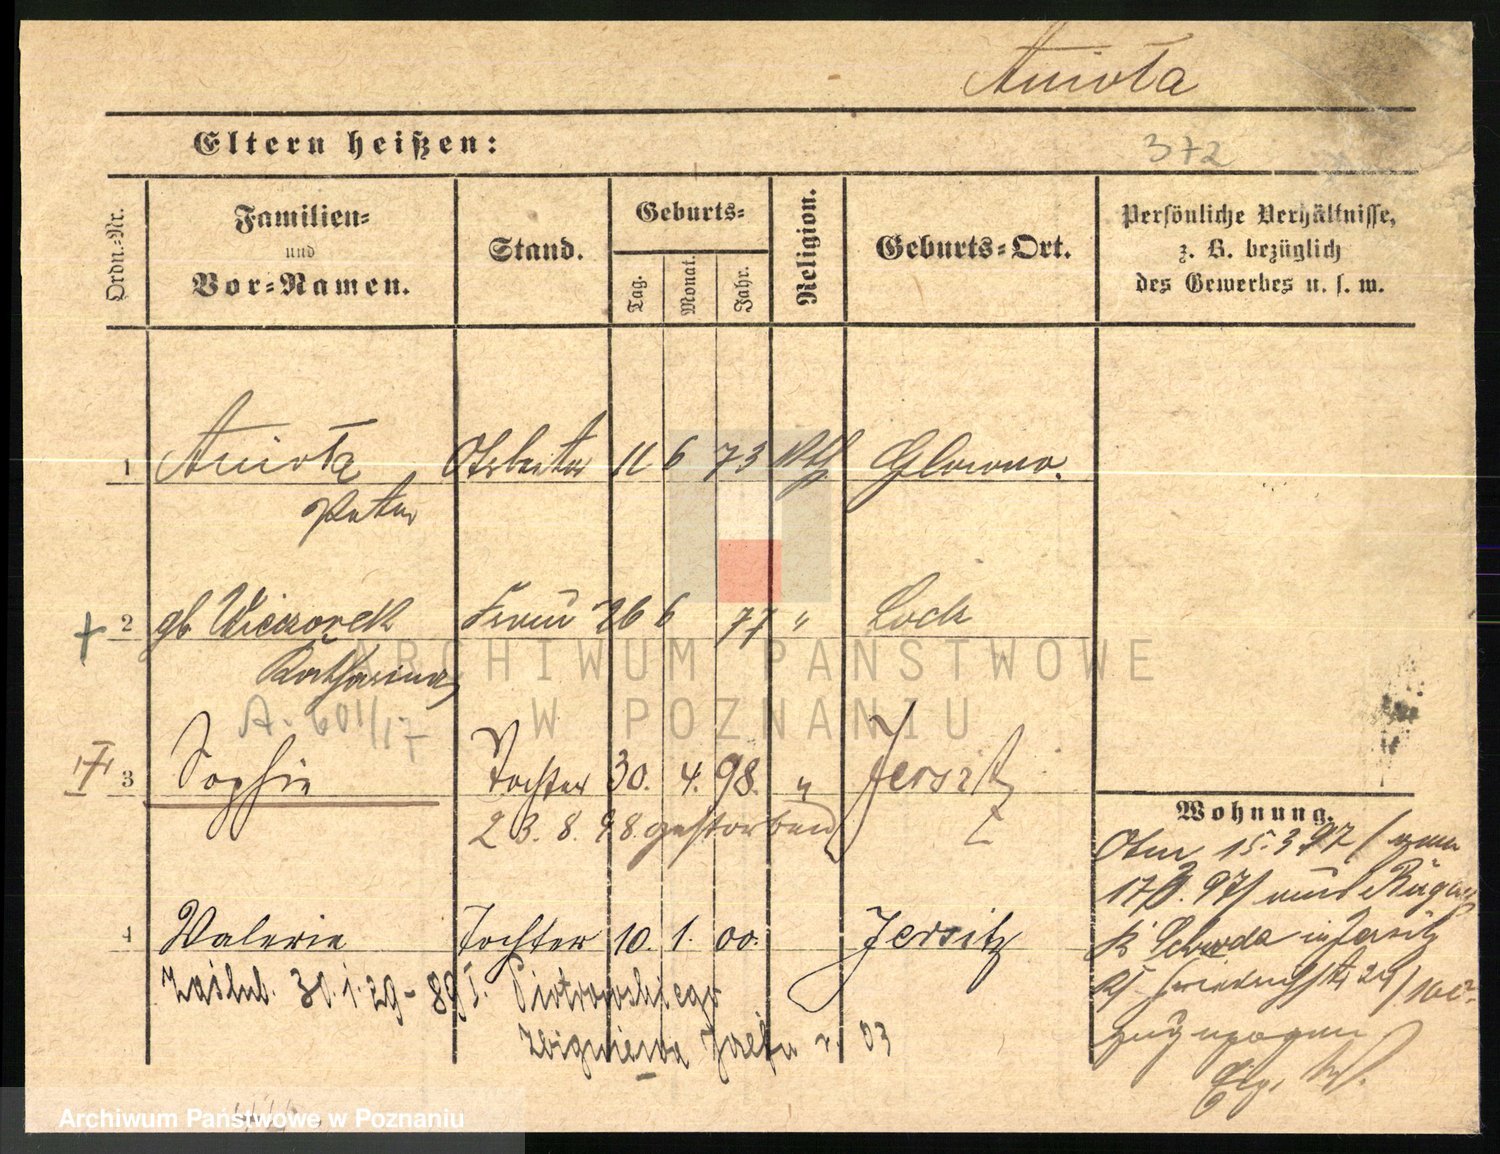 Anioła
Eltern heißen:
372
Ordn.-Nr.
Familien-
und
Vor-Namen.
Stand.
Geburts-
Tag.
Monat.
Jahr.
Religion.
Geburts-Ort.
Persönliche Verhältnisse,
z. B. bezüglich
des Gewerbes u. s. w.
1 Anioła Arbeiter 11 6 73 Kth Glowno.
Peter
2 gb Wieczorek Frau 26 6 77 " Lock
Katharina
A. 601/17
3 Sophie Tochter 30. 4. 98. " Jersitz
23. 8. 98. gestorben
4 Valerie Tochter 10. 1. 00. Jersitz
Zaślub. 30.1.29 - 89 I. Piotrowskiego
Zbigniewa Józefa r. 03
Wohnung.
15. 3 97
17/3. 97
in Jersitz
Friedrichstr 24
zugezogen
ARCHIWUM PAŃSTWOWE
W POZNANIU
Archiwum Państwowe w Poznaniu